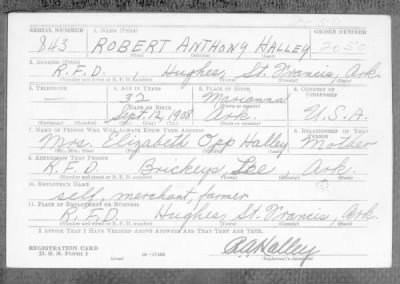 2050
SERIAL NUMBER 1. NAME (Print) ORDER NUMBER
843 ROBERT ANTHONY HALLEY 2050
(First) (Middle) (Last)
2. ADDRESS (Print)
R.F.D. Hughes, St. Francis, Ark.
(Number and street or R. F. D. number) (Town) (County) (State)
3. TELEPHONE 4. AGE IN YEARS 5. PLACE OF BIRTH 6. COUNTRY OF CITIZENSHIP
— 32 Marianna
DATE OF BIRTH (Town or county)
Sept. 12, 1908 Ark. U.S.A.
(Exchange) (Number) (Mo.) (Day) (Yr.) (State or country)
7. NAME OF PERSON WHO WILL ALWAYS KNOW YOUR ADDRESS 8. RELATIONSHIP OF THAT PERSON
Mrs. Elizabeth Opp Halley Mother
(Mr., Mrs., Miss) (First) (Middle) (Last)
9. ADDRESS OF THAT PERSON
R.F.D. Brickeys Lee, Ark.
(Number and street or R. F. D. number) (Town) (County) (State)
10. EMPLOYER'S NAME
self, merchant, farmer
11. PLACE OF EMPLOYMENT OR BUSINESS
R.F.D. Hughes, St. Francis, Ark.
(Number and street or R. F. D. number) (Town) (County) (State)
I AFFIRM THAT I HAVE VERIFIED ABOVE ANSWERS AND THAT THEY ARE TRUE.
REGISTRATION CARD
D. S. S. Form 1 (over) 16—17105 R A Halley
(Registrant's signature)